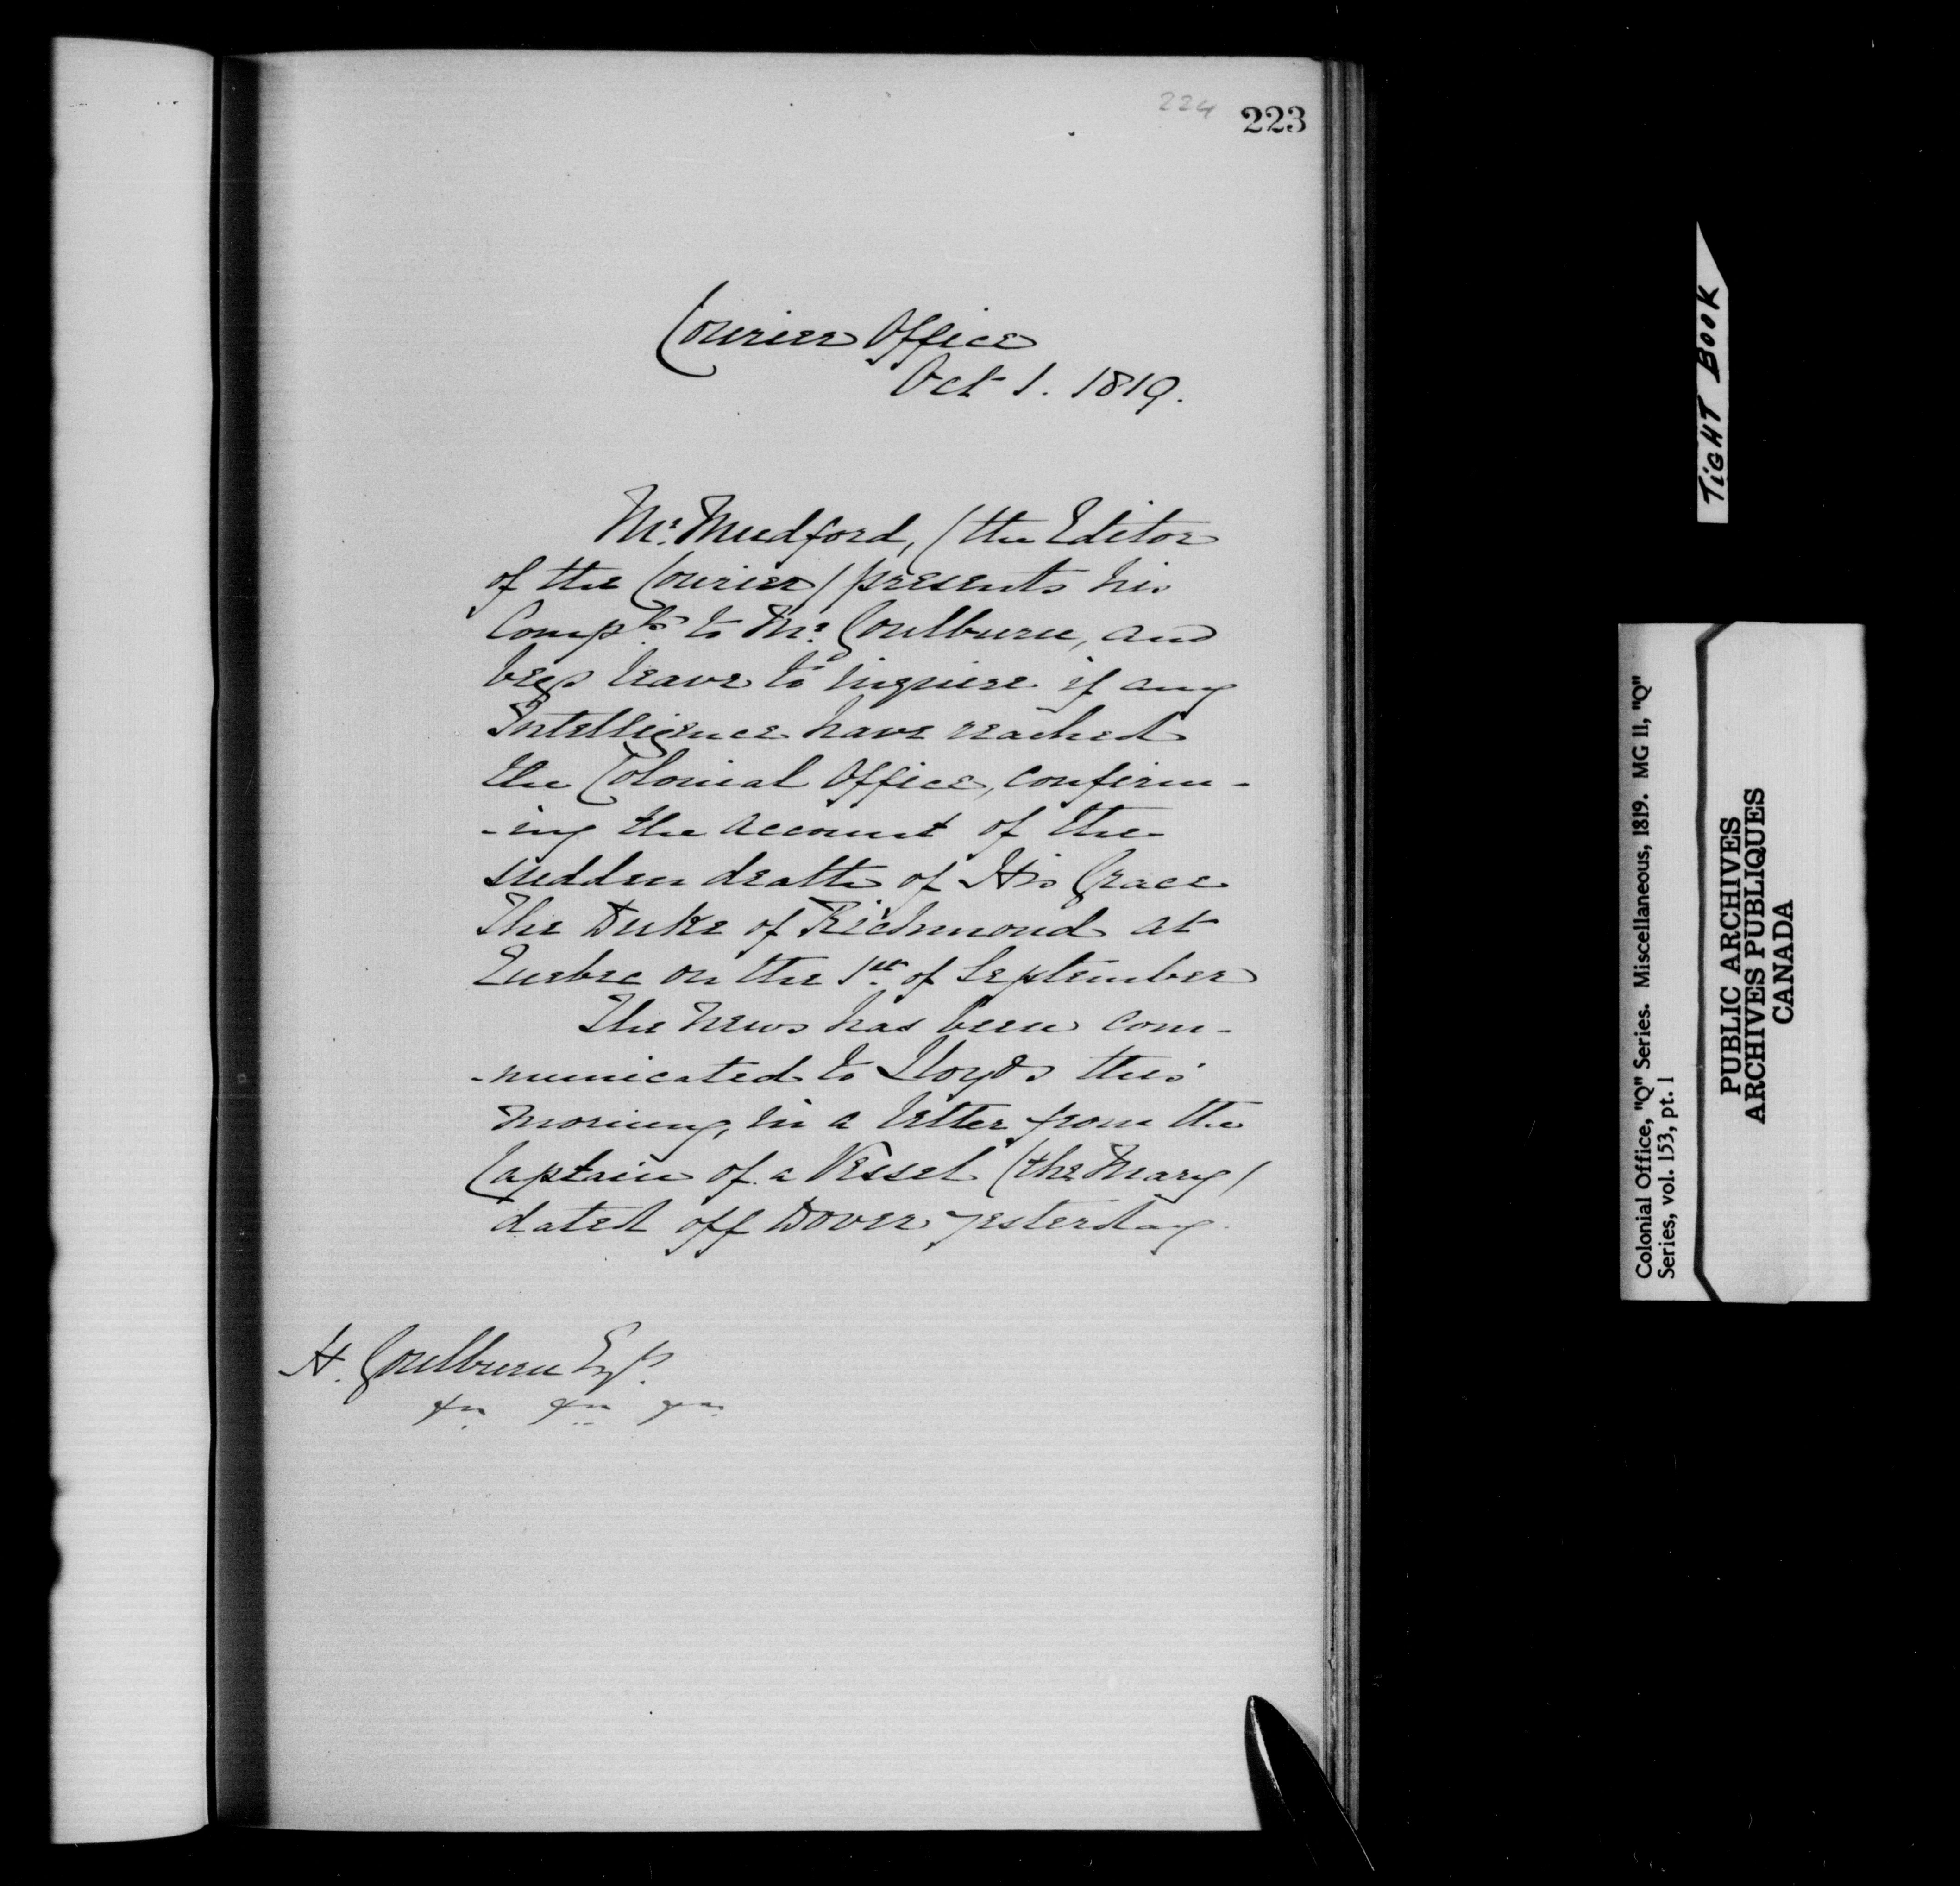 224 223
Courier Office
Oct 1. 1819.
Mr. Mudford, (the Editor
of the Courier) presents his
Compts. to Mr. Goulburn, and
begs leave to inquire if any
Intelligence have reached
the Colonial Office, confirm-
-ing the account of the
sudden death of His Grace
The Duke of Richmond at
Quebec on the 1st. of September
The news has been com-
-municated to Lloyds this
morning, in a letter from the
Captain of a Vessel (the Mary)
dated off Dover yesterday.
H. Goulburn Esqr.
&c. &c. &c.
TIGHT BOOK
Colonial Office, "Q" Series. Miscellaneous, 1819. MG 11, "Q"
Series, vol. 153, pt. 1
PUBLIC ARCHIVES
ARCHIVES PUBLIQUES
CANADA